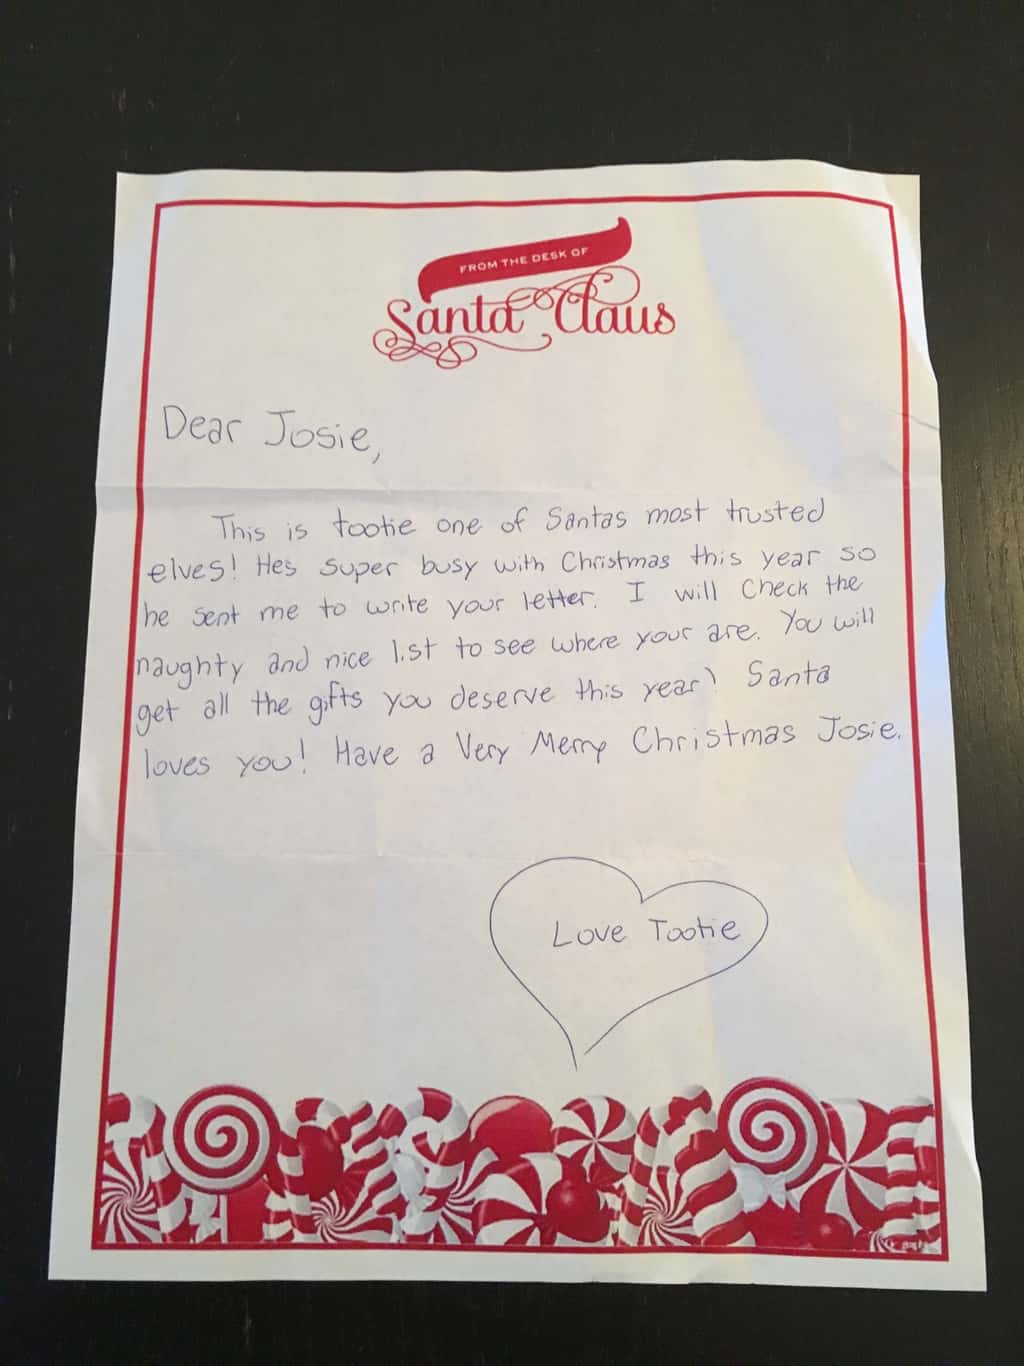 FROM THE DESK OF
Santa Claus
Dear Josie,
This is tootie one of Santas most trusted
elves! Hes super busy with Christmas this year so
he sent me to write your letter. I will Check the
naughty and nice list to see where your are. You will
get all the gifts you deserve this year! Santa
loves you! Have a Very Merry Christmas Josie.
Love Tootie